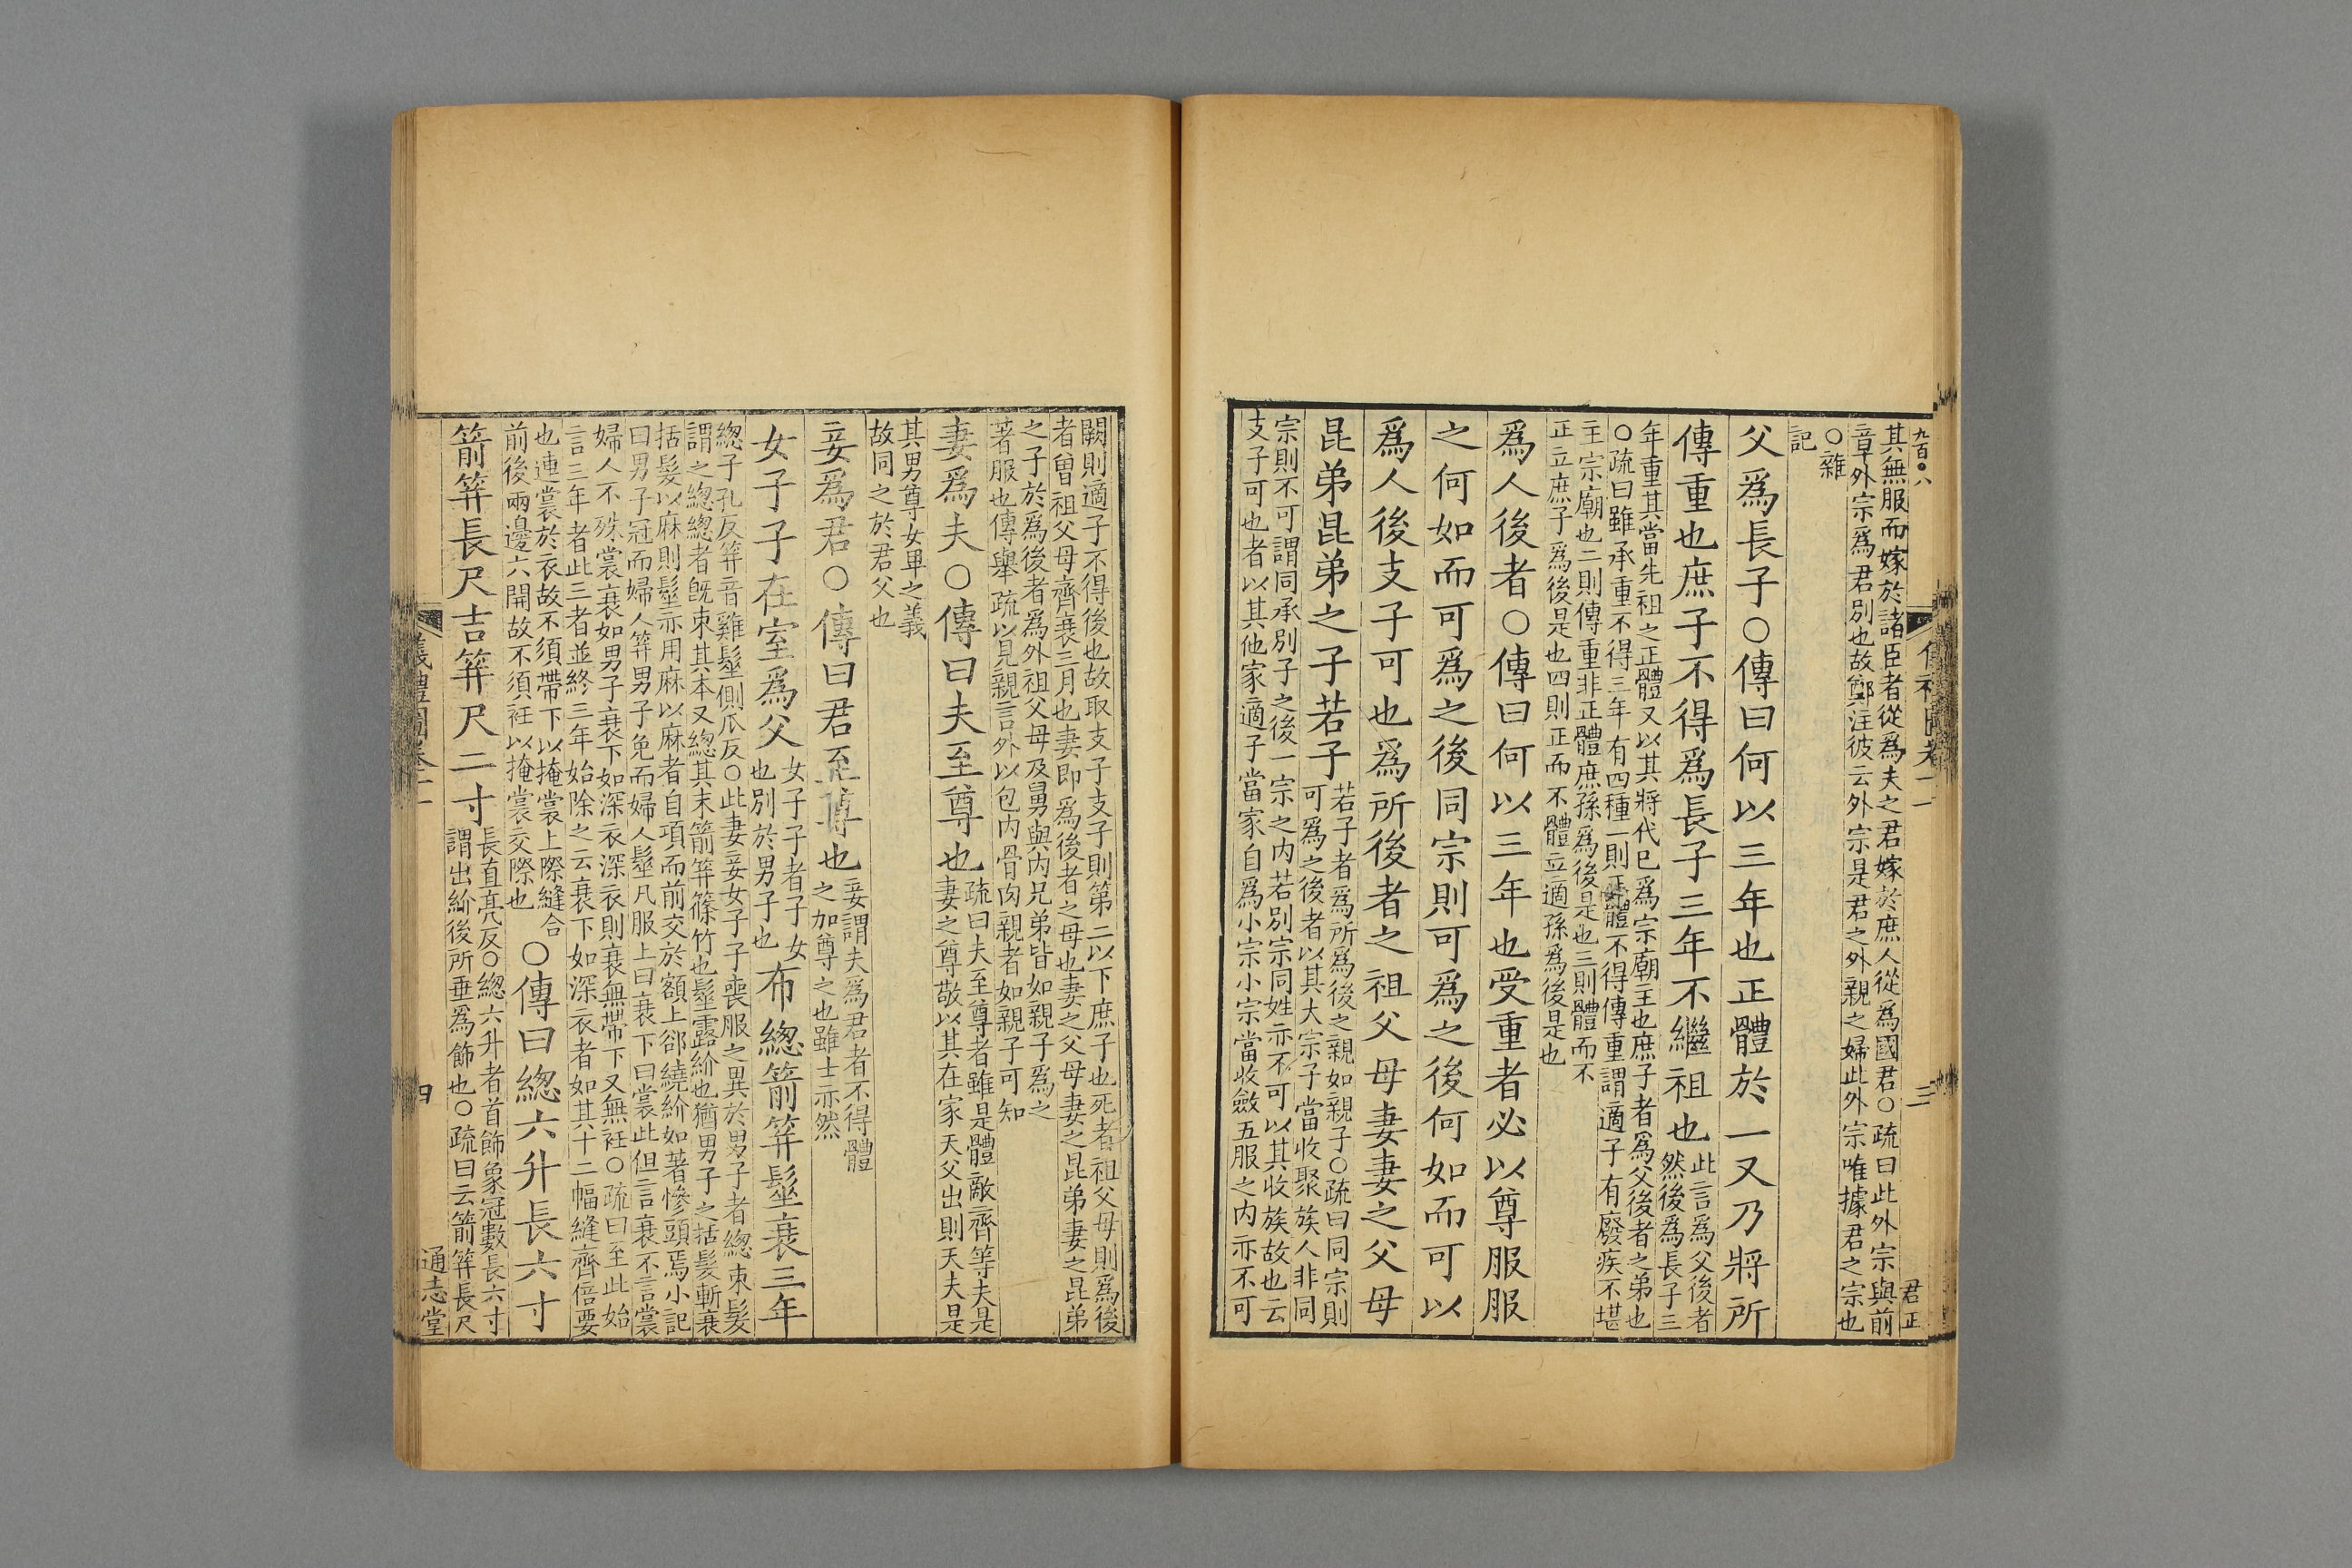 九百〇八
君正
三
其無服而嫁於諸臣者從為夫之君嫁於庶人從為國君○疏曰此外宗與前
章外宗為君別也故鄭注彼云外宗是君之外親之婦此外宗唯據君之宗也
○雜
記
父爲長子○傳曰何以三年也正體於一又乃將所
傳重也庶子不得爲長子三年不繼祖也
此言爲父後者
然後爲長子三
年重其當先祖之正體又以其將代已爲宗廟主也庶子者爲父後者之弟也
○疏曰雖承重不得三年有四種一則正體不得傳重謂適子有廢疾不堪
主宗廟也二則傳重非正體庶孫爲後是也三則體而不
正立庶子爲後是也四則正而不體立適孫爲後是也
爲人後者○傳曰何以三年也受重者必以尊服服
之何如而可爲之後同宗則可爲之後何如而可以
爲人後支子可也爲所後者之祖父母妻妻之父母
昆弟昆弟之子若子
若子者爲所爲後之親如親子○疏曰同宗則
可爲之後者以其大宗子當收聚族人非同
宗則不可謂同承別子之後一宗之内若別宗同姓亦不可以其收族故也云
支子可也者以其他家適子當家自爲小宗小宗當收斂五服之内亦不可
闕則適子不得後也故取支子支子則第二以下庶子也死者祖父母則爲後
者曾祖父母齊衰三月也妻即爲後者之母也妻之父母妻之昆弟妻之昆弟
之子於爲後者爲外祖父母及舅與内兄弟皆如親子爲之
著服也傳舉疏以見親言外以包内骨肉親者如親子可知
妻爲夫○傳曰夫至尊也
疏曰夫至尊者雖是體敵齊等夫是
妻之尊敬以其在家天父出則天夫是
其男尊女卑之義
故同之於君父也
妾爲君○傳曰君至尊也
妾謂夫爲君者不得體
之加尊之也雖士亦然
女子子在室爲父
女子子者子女
也別於男子也
布總箭筓髽衰三年
總子孔反筓音雞髽側爪反○此妻妾女子子喪服之異於男子者總束髮
謂之總總者旣束其本又總其末箭筓篠竹也髽露紒也猶男子之括髮斬衰
括髮以麻則髽亦用麻以麻者自項而前交於額上郤繞紒如著幓頭焉小記
曰男子冠而婦人筓男子免而婦人髽凡服上曰衰下曰裳此但言衰不言裳
婦人不殊裳衰如男子衰下如深衣深衣則衰無帶下又無衽○疏曰至此始
言三年者此三者並終三年始除之云衰下如深衣者如其十二幅縫齊倍要
也連裳於衣故不須帶下以掩裳上際縫合
前後兩邊六開故不須衽以掩裳交際也
○傳曰總六升長六寸
箭筓長尺吉筓尺二寸
長直亮反○總六升者首飾象冠數長六寸
謂出紒後所垂爲飾也○疏曰云箭筓長尺
四
通志堂